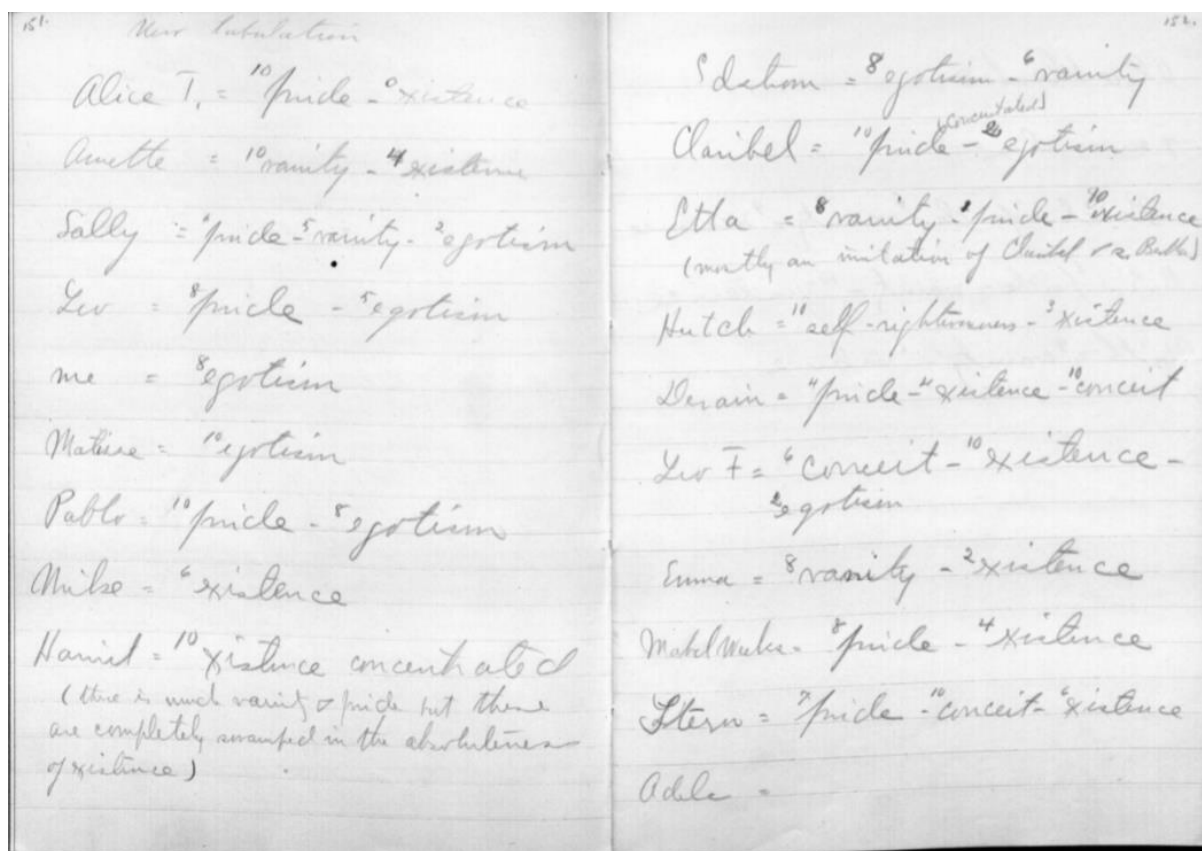 151.
New Tabulation
Alice T. = 10 pride - 0 xistence
Annette = 10 vanity - 4 existence
Sally = pride - 5 vanity - 2 egotism
Leo = 8 pride - 5 egotism
me = 8 egotism
Matisse = 10 egotism
Pablo = 10 pride - 8 egotism
Mike = 6 existence
Harriet = 10 xistence concentrated
(there is much vanity & pride but these
are completely swamped in the absoluteness
of existence)
152.
= 8 egotism - 6 vanity
(concentrated)
Claribel = 10 pride - 20 egotism
Etta = 8 vanity - pride - existence
(mostly an imitation of Claribel
Hutch = 10 self-righteousness - 3 xistence
Derain = 4 pride - 4 existence - 10 conceit
Leo F = 6 conceit - 10 existence -
2 egotism
Emma = 8 vanity - 2 xistence
Mabel Weeks = 8 pride - 4 xistence
Stern = 7 pride - 10 conceit - 6 existence
Adele =